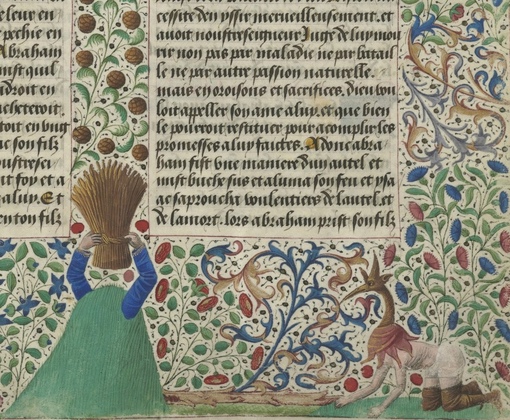 eleur en
pechie en
Abraham
droit en
acheteroit.
tout en
son filz
foy et a
aluy. Et
en ton filz
cessite den yssir merueilleusement. et
noustreseigneur Iuge de luy mou
rir non pas par maladie ne par batail
le ne par autre passion naturelle.
mais en oroisons et sacrifices. dieu vou
rappeller son ame aluy. et que bien
le pourroit restituer pour acomplir les
promesses aluy faictes. Donc abra
ham fist vne maniere dun autel et
mist buche sus et aluma son feu et ysa
ac saproucha voulentiers de lautel et
de la mort. lors abraham prist son filz